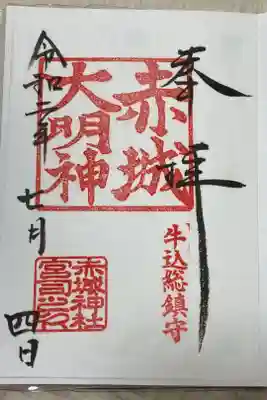 奉拝
赤城
大明神
牛込総鎮守
赤城神社
宮司之印
令和二年
七月
四日